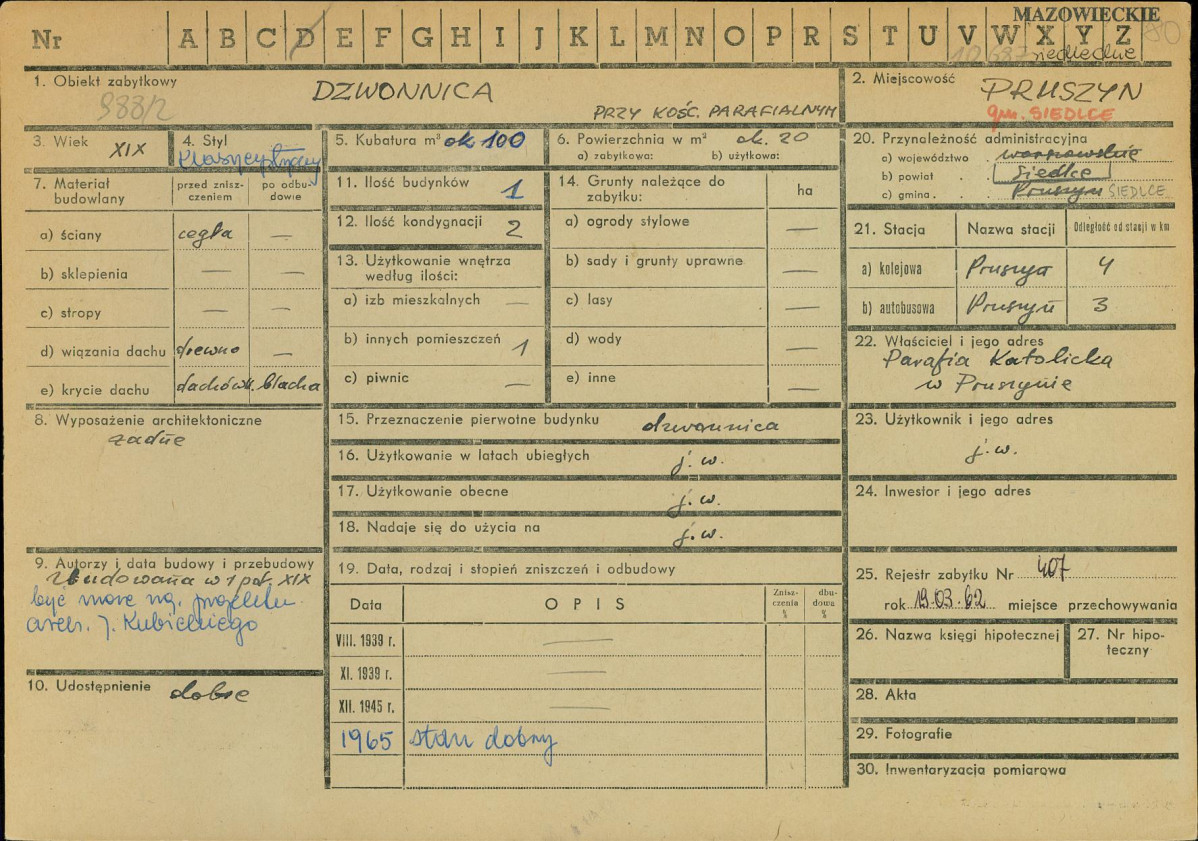 MAZOWIECKIE
Nr A B C D E F G H I J K L M N O P R S T U V W X Y Z
siedleckie
1. Obiekt zabytkowy
988/2
DZWONNICA
PRZY KOŚC. PARAFIALNYM
2. Miejscowość
PRUSZYN
gm. SIEDLCE
3. Wiek XIX
4. Styl
5. Kubatura m³ ok 100
6. Powierzchnia w m² ok. 20
a) zabytkowa: b) użytkowa:
7. Materiał budowlany
przed zniszczeniem
po odbudowie
a) ściany cegła —
b) sklepienia — —
c) stropy — —
d) wiązania dachu drewno —
e) krycie dachu dachówk. blacha
8. Wyposażenie architektoniczne
żadne
9. Autorzy i data budowy i przebudowy
Zbudowana w 1 poł. XIX
być może wg. projektu
arch. J. Kubickiego
10. Udostępnienie dobre
11. Ilość budynków 1
12. Ilość kondygnacji 2
13. Użytkowanie wnętrza
według ilości:
a) izb mieszkalnych —
b) innych pomieszczeń 1
c) piwnic —
14. Grunty należące do
zabytku:
ha
a) ogrody stylowe —
b) sady i grunty uprawne —
c) lasy —
d) wody —
e) inne —
15. Przeznaczenie pierwotne budynku dzwonnica
16. Użytkowanie w latach ubiegłych j. w.
17. Użytkowanie obecne j. w.
18. Nadaje się do użycia na j. w.
19. Data, rodzaj i stopień zniszczeń i odbudowy
Data OPIS Zniszczenia % dbudowa %
VIII. 1939 r. —
XI. 1939 r. —
XII. 1945 r. —
1965 stan dobry
20. Przynależność administracyjna
a) województwo warszawskie
b) powiat Siedlce
c) gmina Pruszyn SIEDLCE
21. Stacja Nazwa stacji Odległość od stacji w km
a) kolejowa Pruszyn 4
b) autobusowa Pruszyn 3
22. Właściciel i jego adres
Parafia Katolicka
w Pruszynie
23. Użytkownik i jego adres
j. w.
24. Inwestor i jego adres
25. Rejestr zabytku Nr 407
rok 19.03.62 miejsce przechowywania
26. Nazwa księgi hipotecznej
27. Nr hipoteczny
28. Akta
29. Fotografie
30. Inwentaryzacja pomiarowa